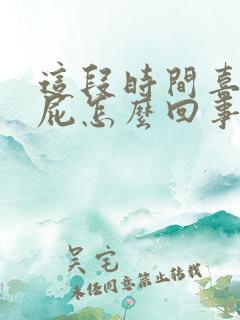 這段時間喜
屁怎麼回事
吴宅
未任同意禁止转载